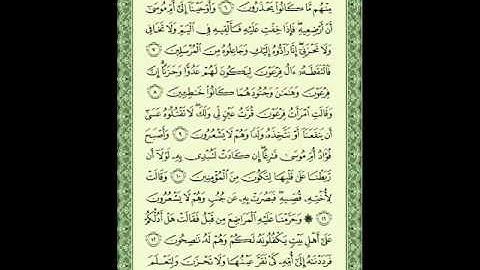 مِنْهُم مَّا كَانُوا۟ يَحْذَرُونَ ٦ وَأَوْحَيْنَآ إِلَىٰٓ أُمِّ مُوسَىٰٓ
أَنْ أَرْضِعِيهِ ۖ فَإِذَا خِفْتِ عَلَيْهِ فَأَلْقِيهِ فِى ٱلْيَمِّ وَلَا تَخَافِى
وَلَا تَحْزَنِىٓ ۖ إِنَّا رَآدُّوهُ إِلَيْكِ وَجَاعِلُوهُ مِنَ ٱلْمُرْسَلِينَ ٧
فَٱلْتَقَطَهُۥٓ ءَالُ فِرْعَوْنَ لِيَكُونَ لَهُمْ عَدُوًّا وَحَزَنًا ۗ إِنَّ
فِرْعَوْنَ وَهَـٰمَـٰنَ وَجُنُودَهُمَا كَانُوا۟ خَـٰطِـِٔينَ ٨
وَقَالَتِ ٱمْرَأَتُ فِرْعَوْنَ قُرَّتُ عَيْنٍ لِّى وَلَكَ ۖ لَا تَقْتُلُوهُ عَسَىٰٓ
أَن يَنفَعَنَآ أَوْ نَتَّخِذَهُۥ وَلَدًا وَهُمْ لَا يَشْعُرُونَ ٩ وَأَصْبَحَ
فُؤَادُ أُمِّ مُوسَىٰ فَـٰرِغًا ۖ إِن كَادَتْ لَتُبْدِى بِهِۦ لَوْلَآ أَن
رَّبَطْنَا عَلَىٰ قَلْبِهَا لِتَكُونَ مِنَ ٱلْمُؤْمِنِينَ ١٠ وَقَالَتْ
لِأُخْتِهِۦ قُصِّيهِ ۖ فَبَصُرَتْ بِهِۦ عَن جُنُبٍ وَهُمْ لَا يَشْعُرُونَ
١١ ۞ وَحَرَّمْنَا عَلَيْهِ ٱلْمَرَاضِعَ مِن قَبْلُ فَقَالَتْ هَلْ أَدُلُّكُمْ
عَلَىٰٓ أَهْلِ بَيْتٍ يَكْفُلُونَهُۥ لَكُمْ وَهُمْ لَهُۥ نَـٰصِحُونَ ١٢
فَرَدَدْنَـٰهُ إِلَىٰٓ أُمِّهِۦ كَىْ تَقَرَّ عَيْنُهَا وَلَا تَحْزَنَ وَلِتَعْلَمَ